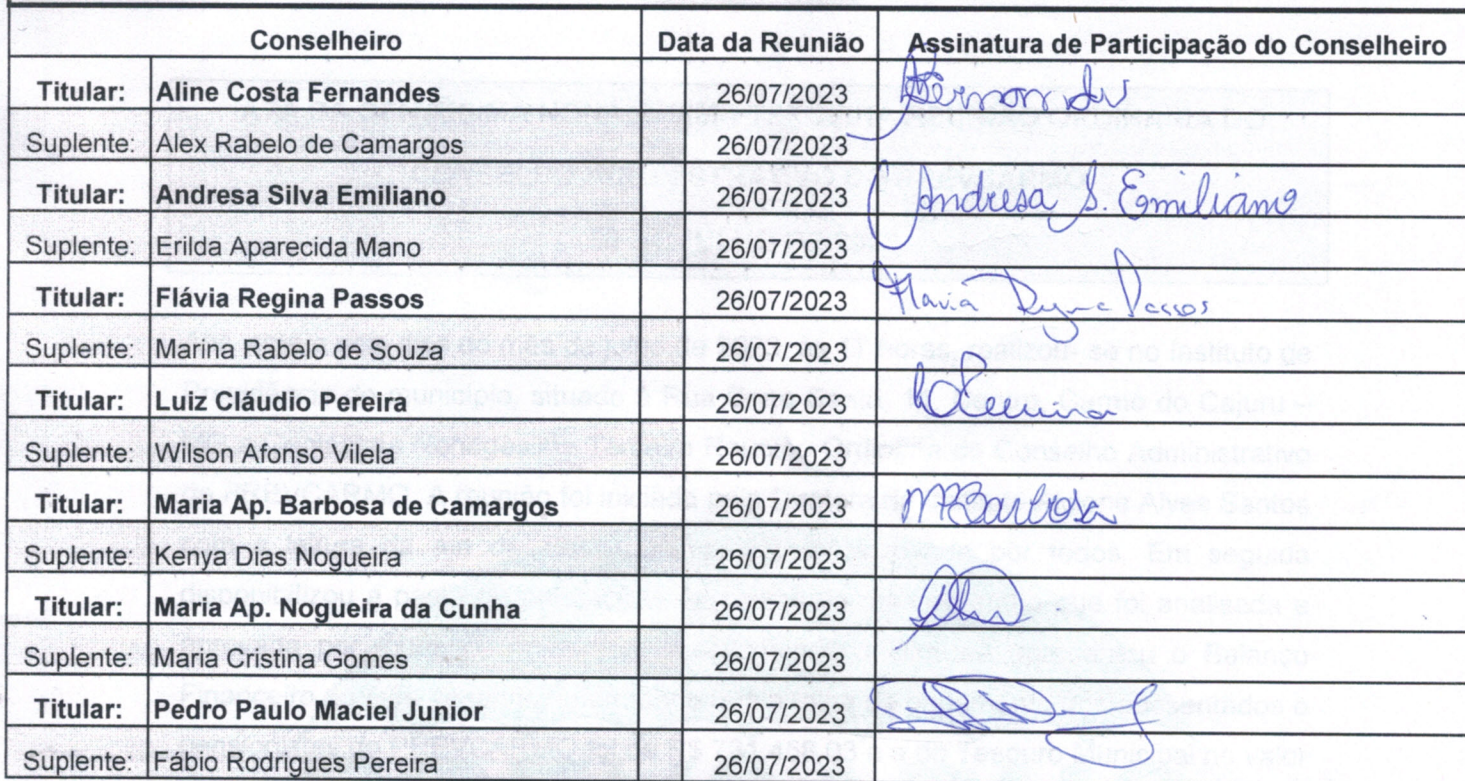 Conselheiro Data da Reunião Assinatura de Participação do Conselheiro
Titular: Aline Costa Fernandes 26/07/2023 Fernandes
Suplente: Alex Rabelo de Camargos 26/07/2023
Titular: Andresa Silva Emiliano 26/07/2023 Andresa S. Emiliano
Suplente: Erilda Aparecida Mano 26/07/2023
Titular: Flávia Regina Passos 26/07/2023 Flavia Regina Passos
Suplente: Marina Rabelo de Souza 26/07/2023
Titular: Luiz Cláudio Pereira 26/07/2023
Suplente: Wilson Afonso Vilela 26/07/2023
Titular: Maria Ap. Barbosa de Camargos 26/07/2023 MBarbosa
Suplente: Kenya Dias Nogueira 26/07/2023
Titular: Maria Ap. Nogueira da Cunha 26/07/2023
Suplente: Maria Cristina Gomes 26/07/2023
Titular: Pedro Paulo Maciel Junior 26/07/2023
Suplente: Fábio Rodrigues Pereira 26/07/2023